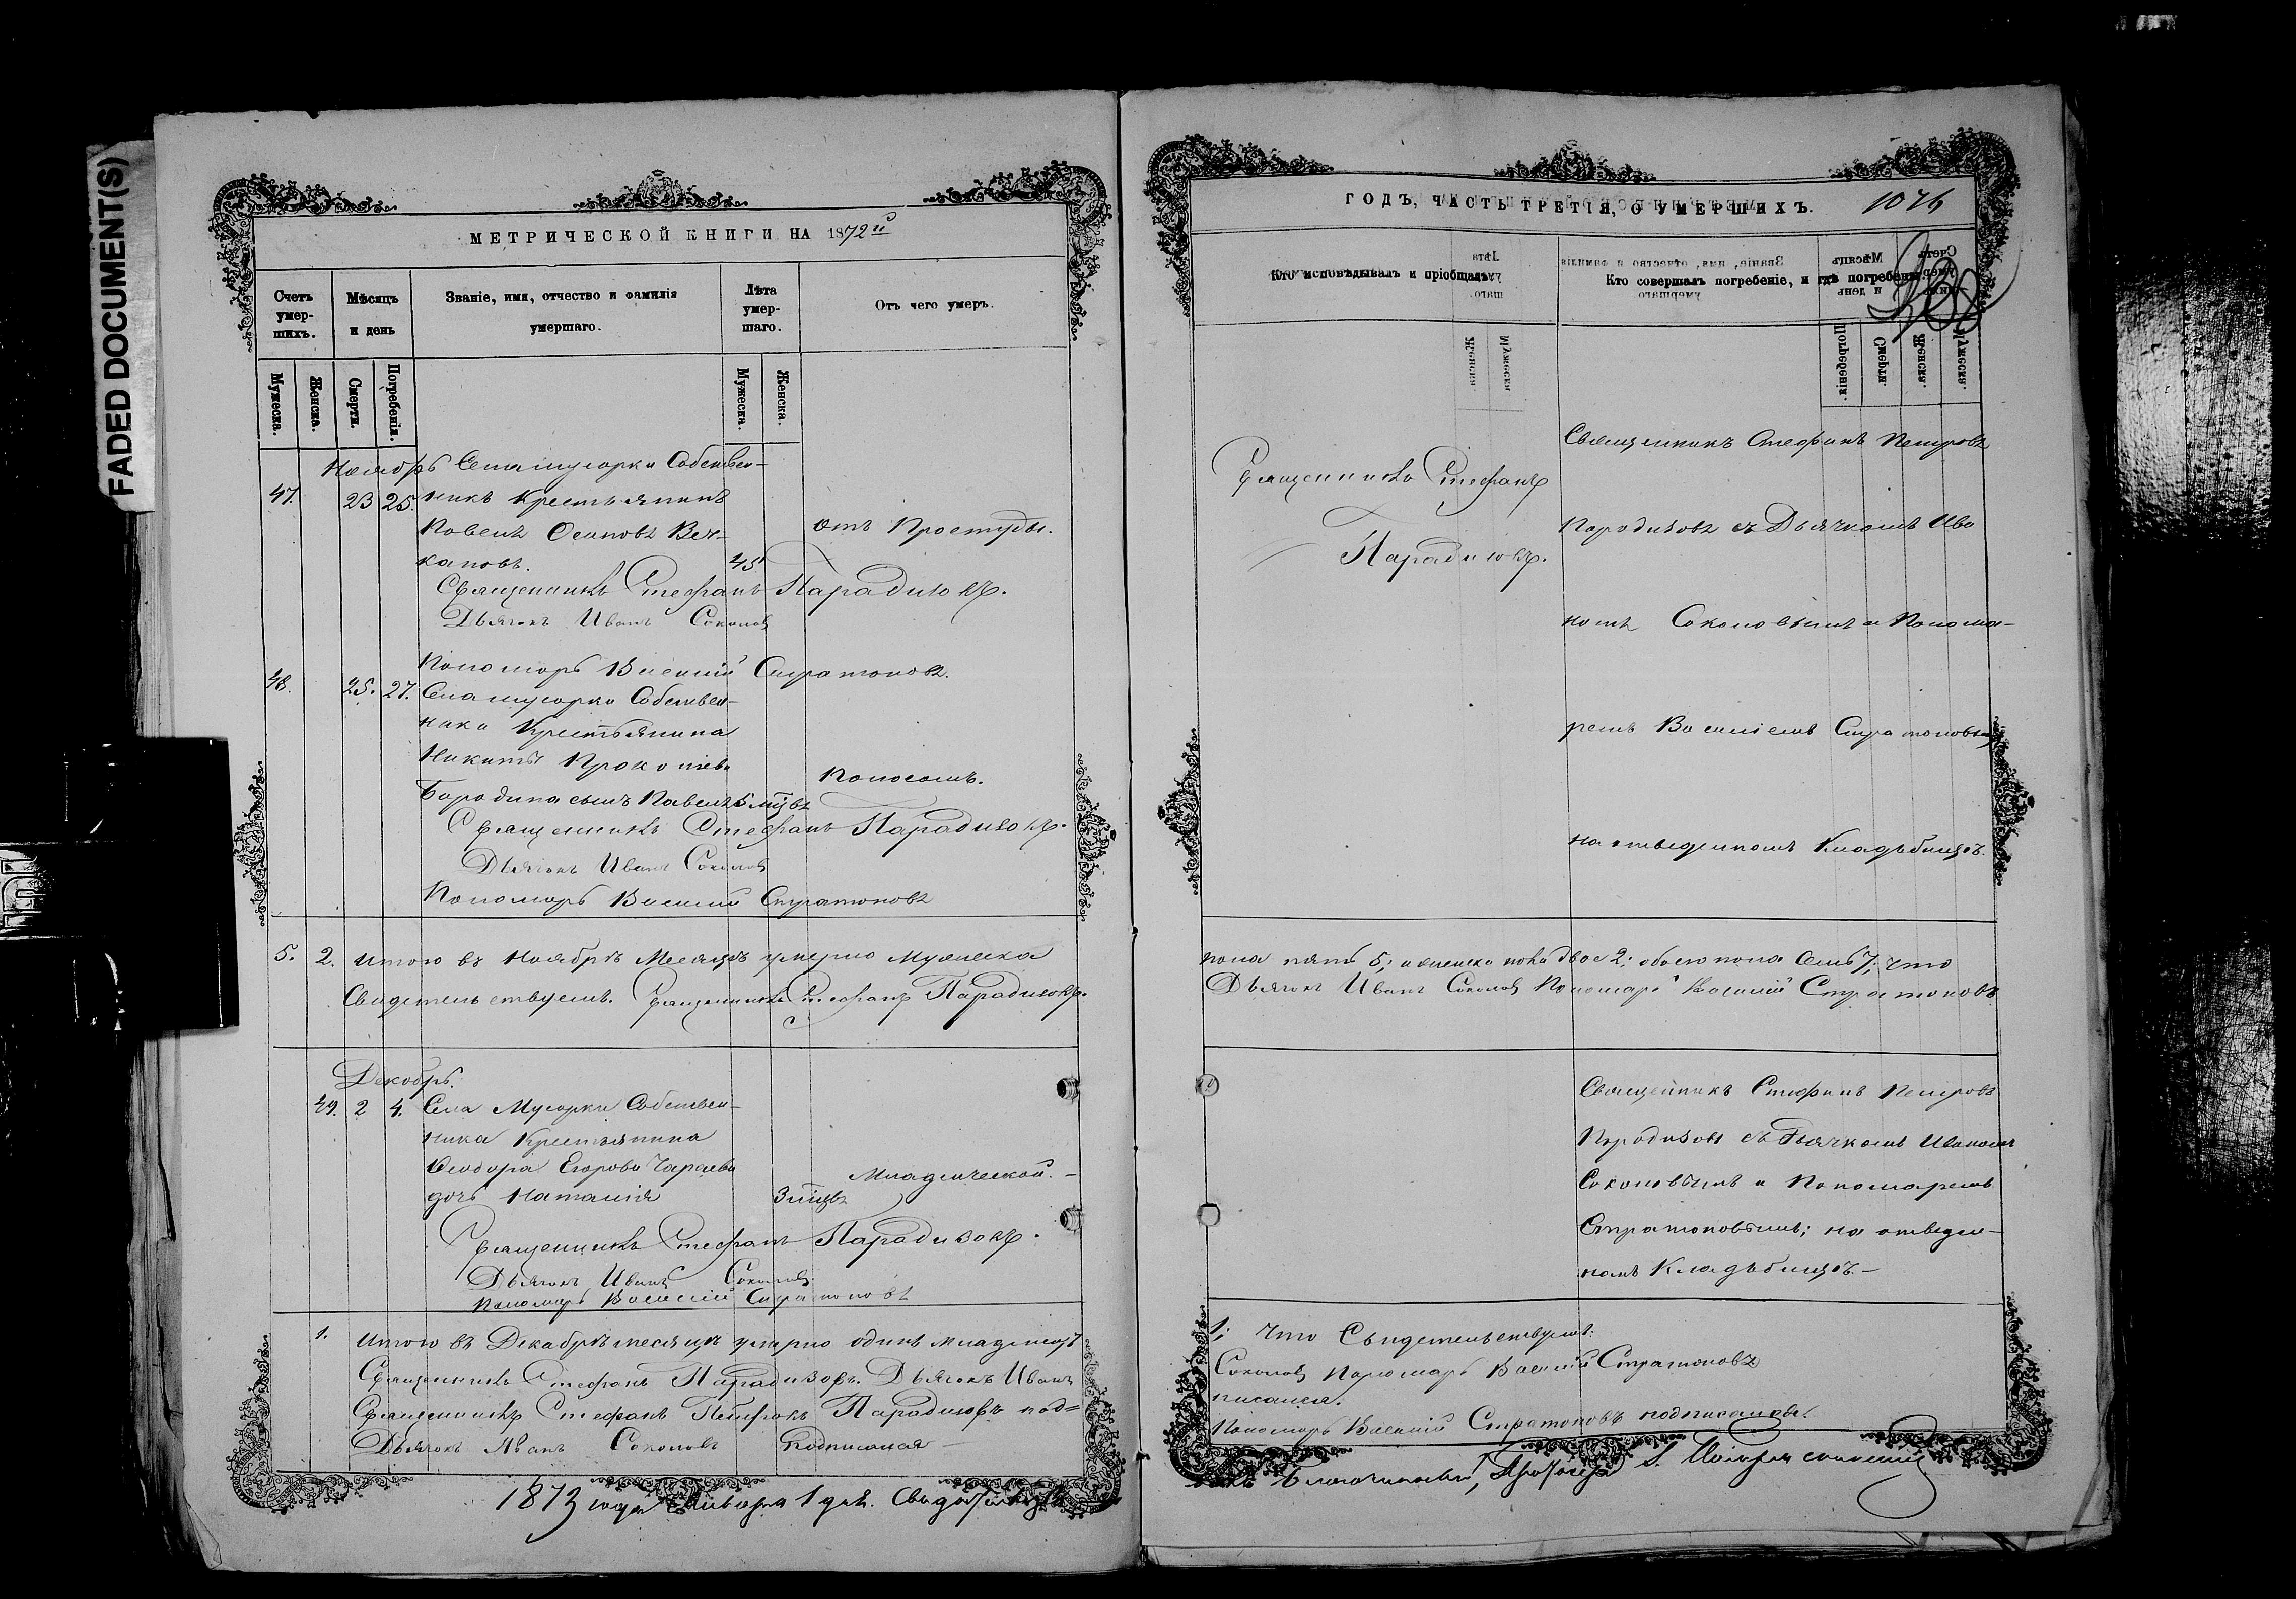 FADED DOCUMENT(S)
МЕТРИЧЕСКОЙ КНИГИ НА 1872й
Счетъ умер-шихъ.
Мѣсяцъ и день
Званіе, имя, отчество и фамилія умершаго.
Лѣта умер-шаго.
Отъ чего умеръ.
Мужеска.
Женска.
Смерти.
Погребенія.
Мужеска.
Женска.
Ноябрь Села мусорки Собствен-
47. 23 25. никъ Крестьянинъ
Павелъ Осиповъ Веч-
кановъ. 45
отъ Простуды.
Священникъ Стефанъ Парадизовъ.
Дьячокъ Иванъ Соколовъ
Пономарь Василий Стратоновъ.
48. 25. 27. Села мусорки Собствен-
ника Крестьянина
Никиты Прокопьева
Бородина сынъ Павелъ 5 мцвъ
Поносомъ.
Священникъ Стефанъ Парадизовъ.
Дьячокъ Иванъ Соколовъ
Пономарь Василий Стратоновъ
5. 2. Итого въ Ноябрѣ Месяцѣ умерло мужеска
Свидетельствуемъ. Священникъ Стефанъ Парадизовъ.
Декабрь.
49. 2 4. Села Мусорки Собствен-
ника Крестьянина
Феодора Егорова Чараева
дочь Наталія 3 мцвъ
Младенческой. -
Священникъ Стефанъ Парадизовъ.
Дьячокъ Иванъ Соколовъ
Пономарь Василий Стратоновъ
1. Итого въ Декабрѣ месяцѣ умерло одинъ младенецъ
Священникъ Стефанъ Парадизовъ. Дьячокъ Иванъ
Священникъ Стефанъ Петровъ Парадизовъ под=
Дьячокъ Иванъ Соколовъ Подписался
1873 года Января 1 дня. Свидѣтельст
ГОДЪ, ЧАСТЬ ТРЕТІЯ, О УМЕРШИХЪ. 1076
Кто исповѣдывалъ и пріобщалъ.
Кто совершалъ погребеніе, и гдѣ погребены.
Священникъ Стефанъ
Парадизовъ.
Священникъ Стефанъ Петровъ
Парадизовъ съ Дьячкомъ Ива
номъ Соколовымъ и Понома-
ремъ Василіемъ Стратоновымъ
на отведенномъ Кладбищѣ.
пола пять 5; и женска пола двое 2; обоего пола Семь 7; что
Дьячокъ Иванъ Соколовъ Пономарь Василий Стратоновъ
Священникъ Стефанъ Петровъ
Парадизовъ съ Дьячкомъ Иваномъ
Соколовымъ и Пономаремъ
Стратоновымъ; на отведен-
номъ Кладбищѣ. -
1; что Свидетельствуемъ:
Соколовъ Пономарь Василий Стратоновъ
писался.
Пономарь Василий Стратоновъ подписался.
Благочинный, Протоіер